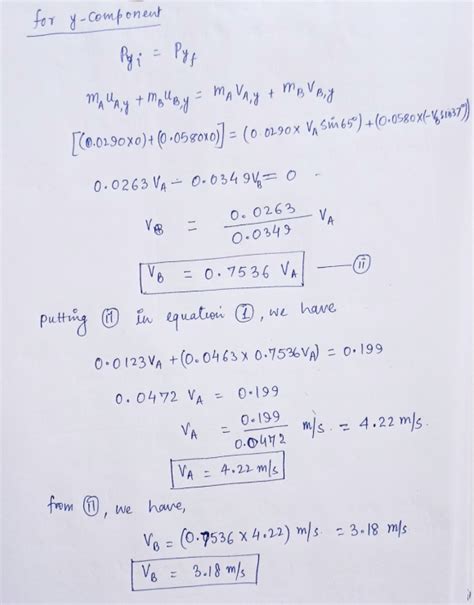 for y-component
Pyi = Pyf
mAuA,y + mBuB,y = mAVA,y + mBVB,y
[(0.0290×0)+(0.0580×0)] = (0.0290× VA sin65°)+(0.0580×(-VB sin37°))
0.0263VA - 0.0349VB = 0
VB = 0.0263/0.0349 VA
VB = 0.7536 VA — (ii)
putting (ii) in equation (1), we have
0.0123VA + (0.0463 × 0.7536VA) = 0.199
0.0472 VA = 0.199
VA = 0.199/0.0472 m/s = 4.22 m/s.
VA = 4.22 m/s
from (ii), we have,
VB = (0.7536 × 4.22) m/s. = 3.18 m/s.
VB = 3.18 m/s